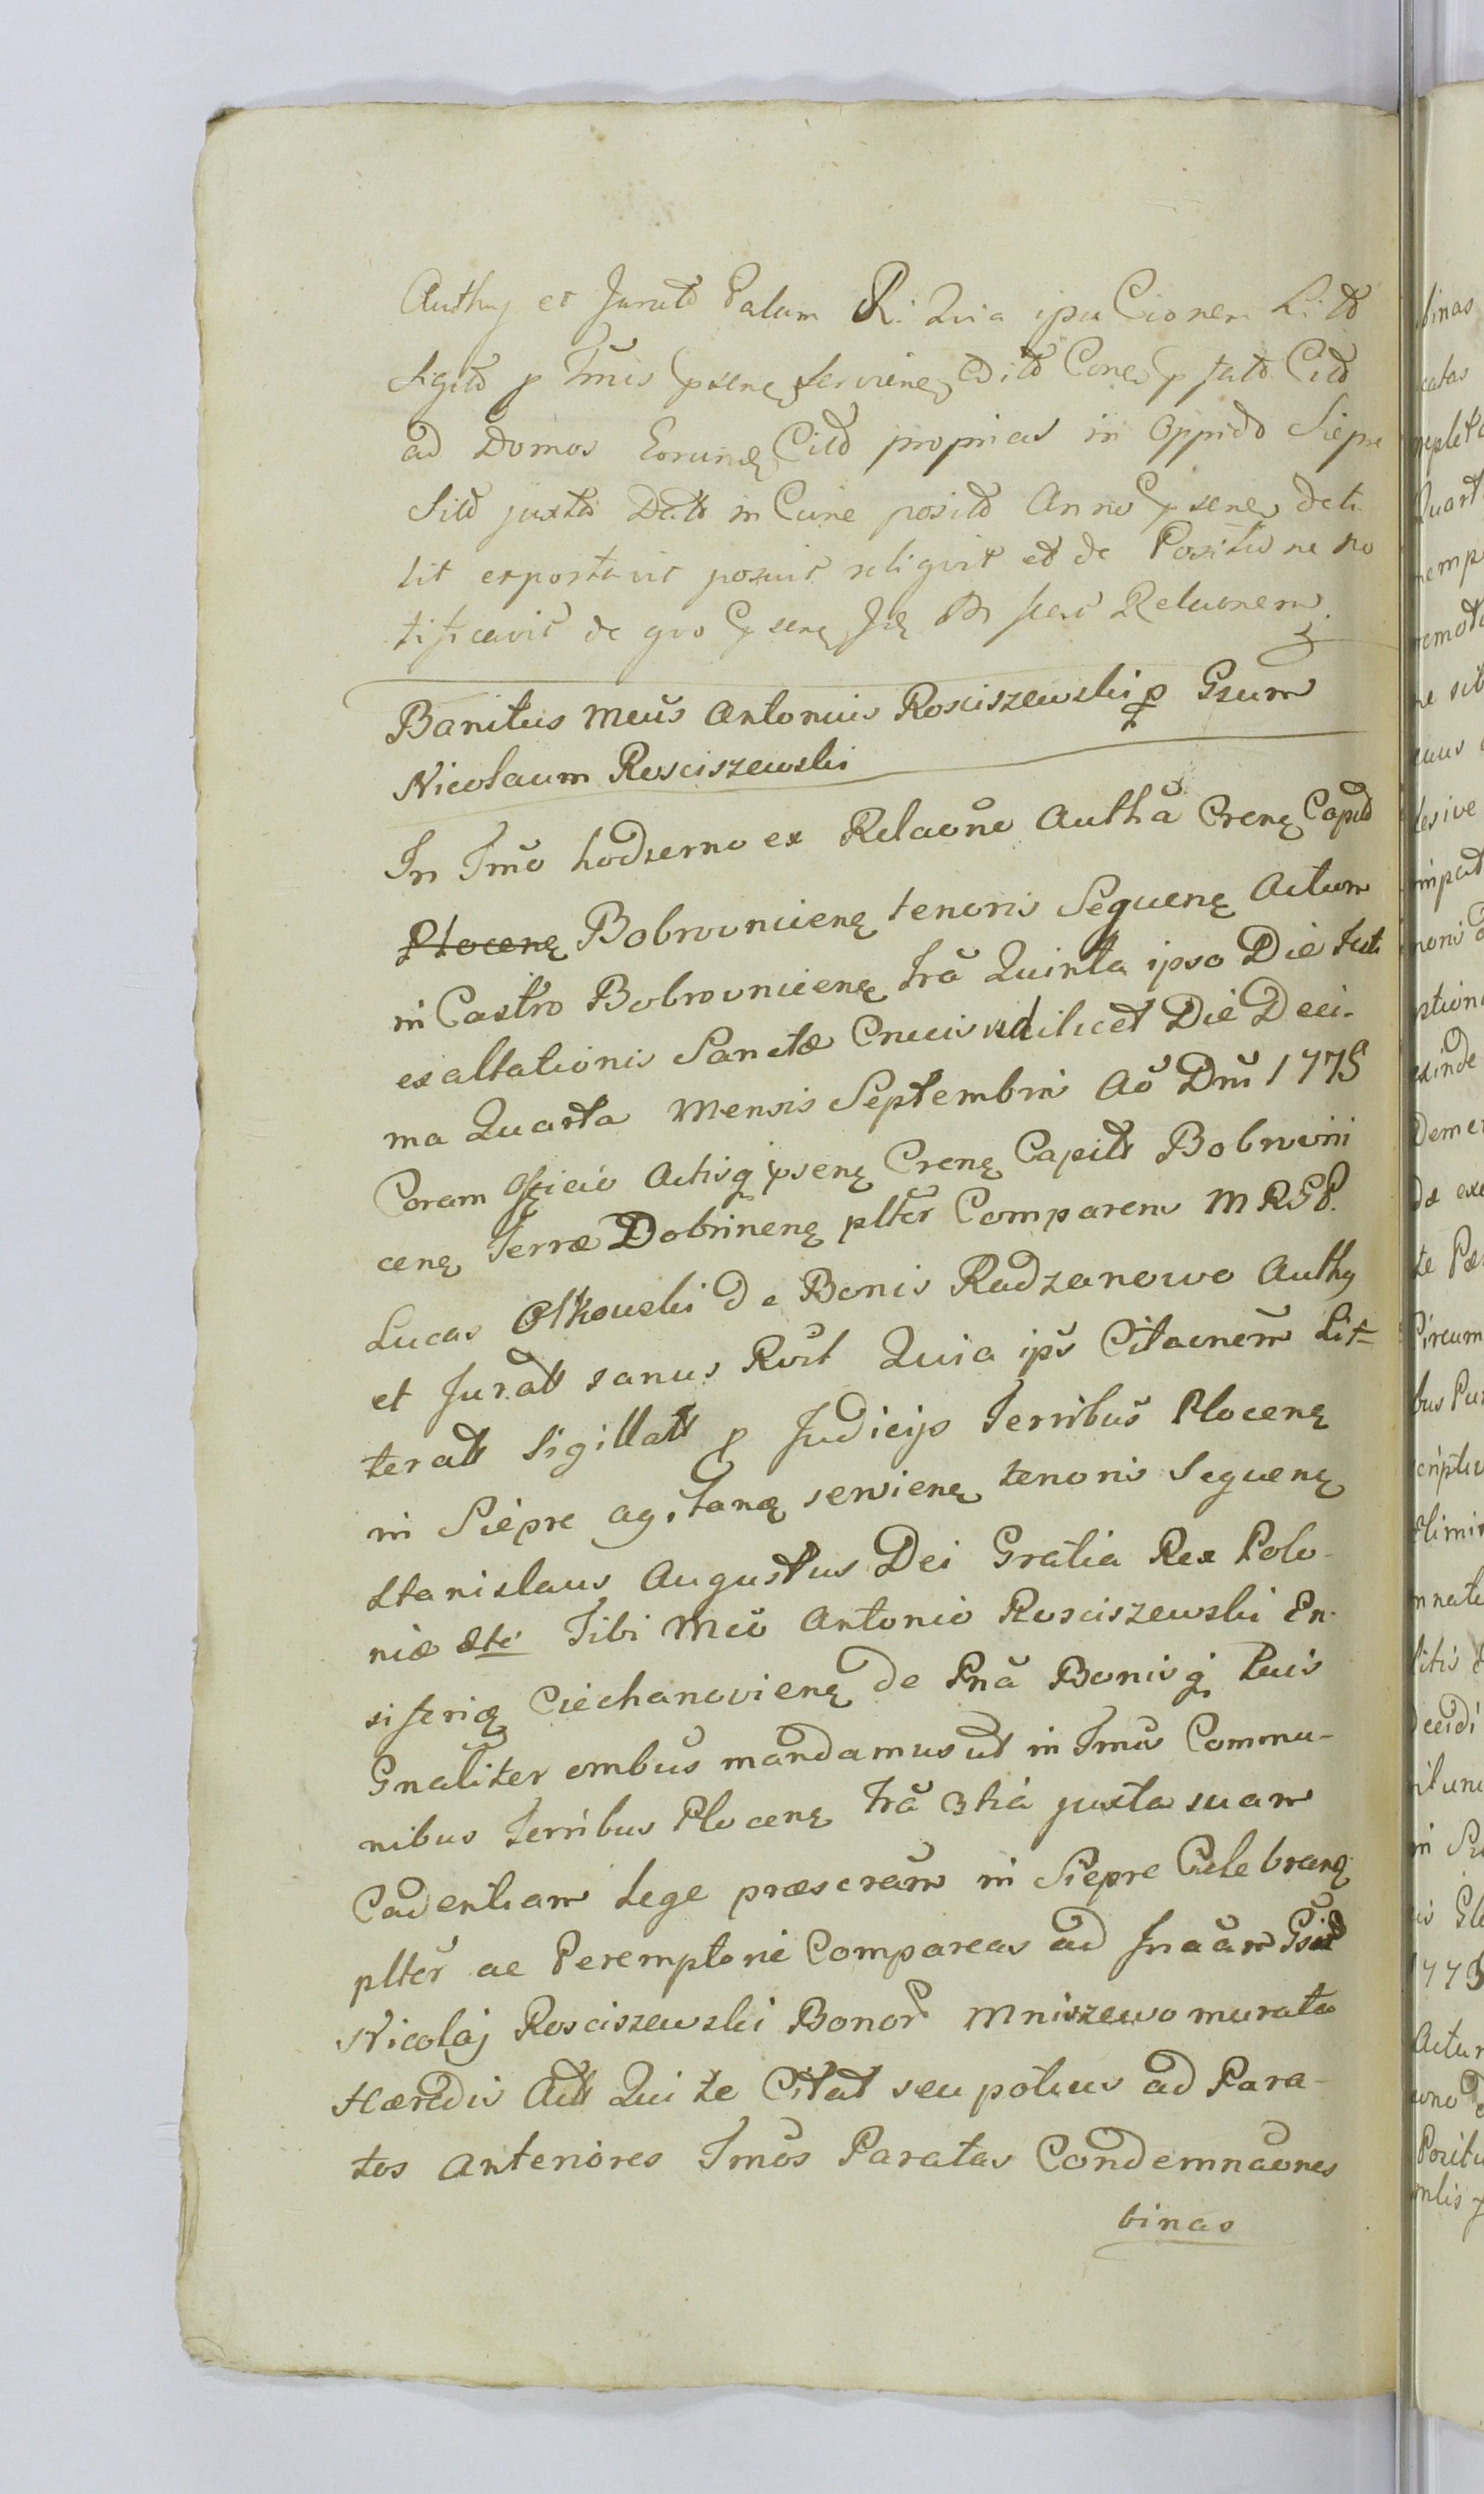 Authy et Juratd Palam R. Quia ipse Cionem Litd
Sigitd p Tmis psenę Servienę Editd Cones p fatd Citd
ad Domos Eorundę Citd proprias in Oppido Siepre
Sitd juxtd Datd in Cune positd Anno psene detu
lit exportavit posuit reliqvit et de Positione no
tificavit de qvo psenę fecit Relaonem
Banitus Mcus Antonius Rosciszewski p Gsum
Nicolaum Rosciszewski
In Tmo hodierno ex Relaone Autha Crenę Capitd
Plocenę Bobrovnicenę tenoris Sequenę Actum
in Castro Bobrovnicenę fra Quinta ipso Die Festi
exaltationis Sanctæ Crucis scilicet Die Deci-
ma Quarta Mensis Septembris Ao Dni 1775
Coram Officio Actisq psenę Crenę Capitt Bobrovni
cenę Terræ Dobrinenę plter Comparens MRGP.
Lucas Olkowski de Bonis Radzanowo Authy
et Juratt sanus Rvit Quia ips Citaonem Lit-
teratt Sigillatt p Judicijs Terribus Plocenę
in Siepre agitanę servienę tenoris Sequenę
Stanislaus Augustus Dei Gratia Rex Polo-
niæ etc Tibi Mco Antonio Rosciszewski En-
siferię Ciechanovienę de Pna Bonisq Tuis
Gnaliter ombus mandamus ut in Tmis Commu-
nibus Terribus Plocenę fra 3tia juxta suam
Cadentiam Lege præscram in Siepre Celebranę
plter ac Peremptorie Compareas ad Jnaam Gsi
Nicolaj Rosciszewski Bonor Mniszewo murata
Hæredis Act Qui te Citat seu potius ad Para-
tos Anteriores Tmos Paratas Condemnaones
binas